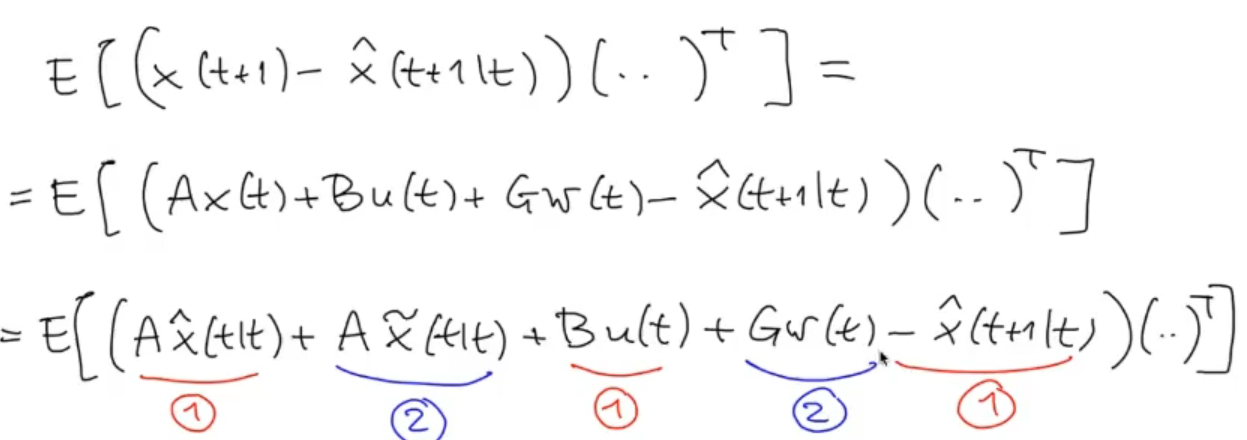 E[(x(t+1) − x̂(t+1|t))(..)ᵀ] =
= E[(Ax(t) + Bu(t) + Gw(t) − x̂(t+1|t))(..)ᵀ]
= E[(Ax̂(t|t) + Ax̃(t|t) + Bu(t) + Gw(t) − x̂(t+1|t))(..)ᵀ]
① ② ① ② ①